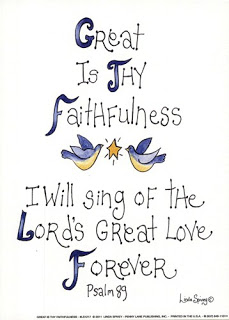 Great
Is Thy
Faithfulness
I Will sing of the
Lord's Great Love
Forever
Psalm 89
Linda Spivey